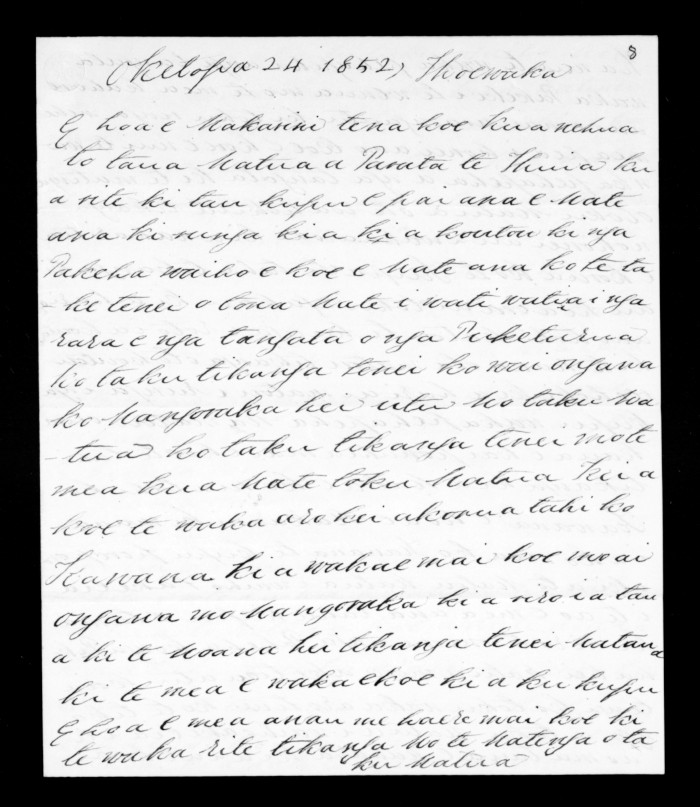 8
Oketopa 24 1852, Thoewaka
E hoa e Makarini tena koe kua nehua
to taua Matua a Parata te Ihuia ku
a rite ki tau kupu e pai ana e Mate
ana ki runga kia kia koutou ki nga
Pakeha waiho e koe e Mate ana ko te ta
ke tenei o tona Mate i wati watia i nga
rara e nga tangata o nga Puketurua
ko taku tikanga tenei ko wai ongawa
ko Mangoraka hei utu Mo taku Ma
-tua ko taku tikanga tenei mote
mea kua Mate toku Matua Kei a
koe te wakaaro kei akorua tahi ko
Kawana ki a wakae mai koe mo ai
ongawa mo Mangoraka ki a riro i a tau
a ki te Moana hei tikanga tenei Matau
ki te mea e wakae koe ki a ku kupu
E hoa e mea anau me haere mai koe ki
te waka rite tikanga Mo te Matenga o ta
ku Matua